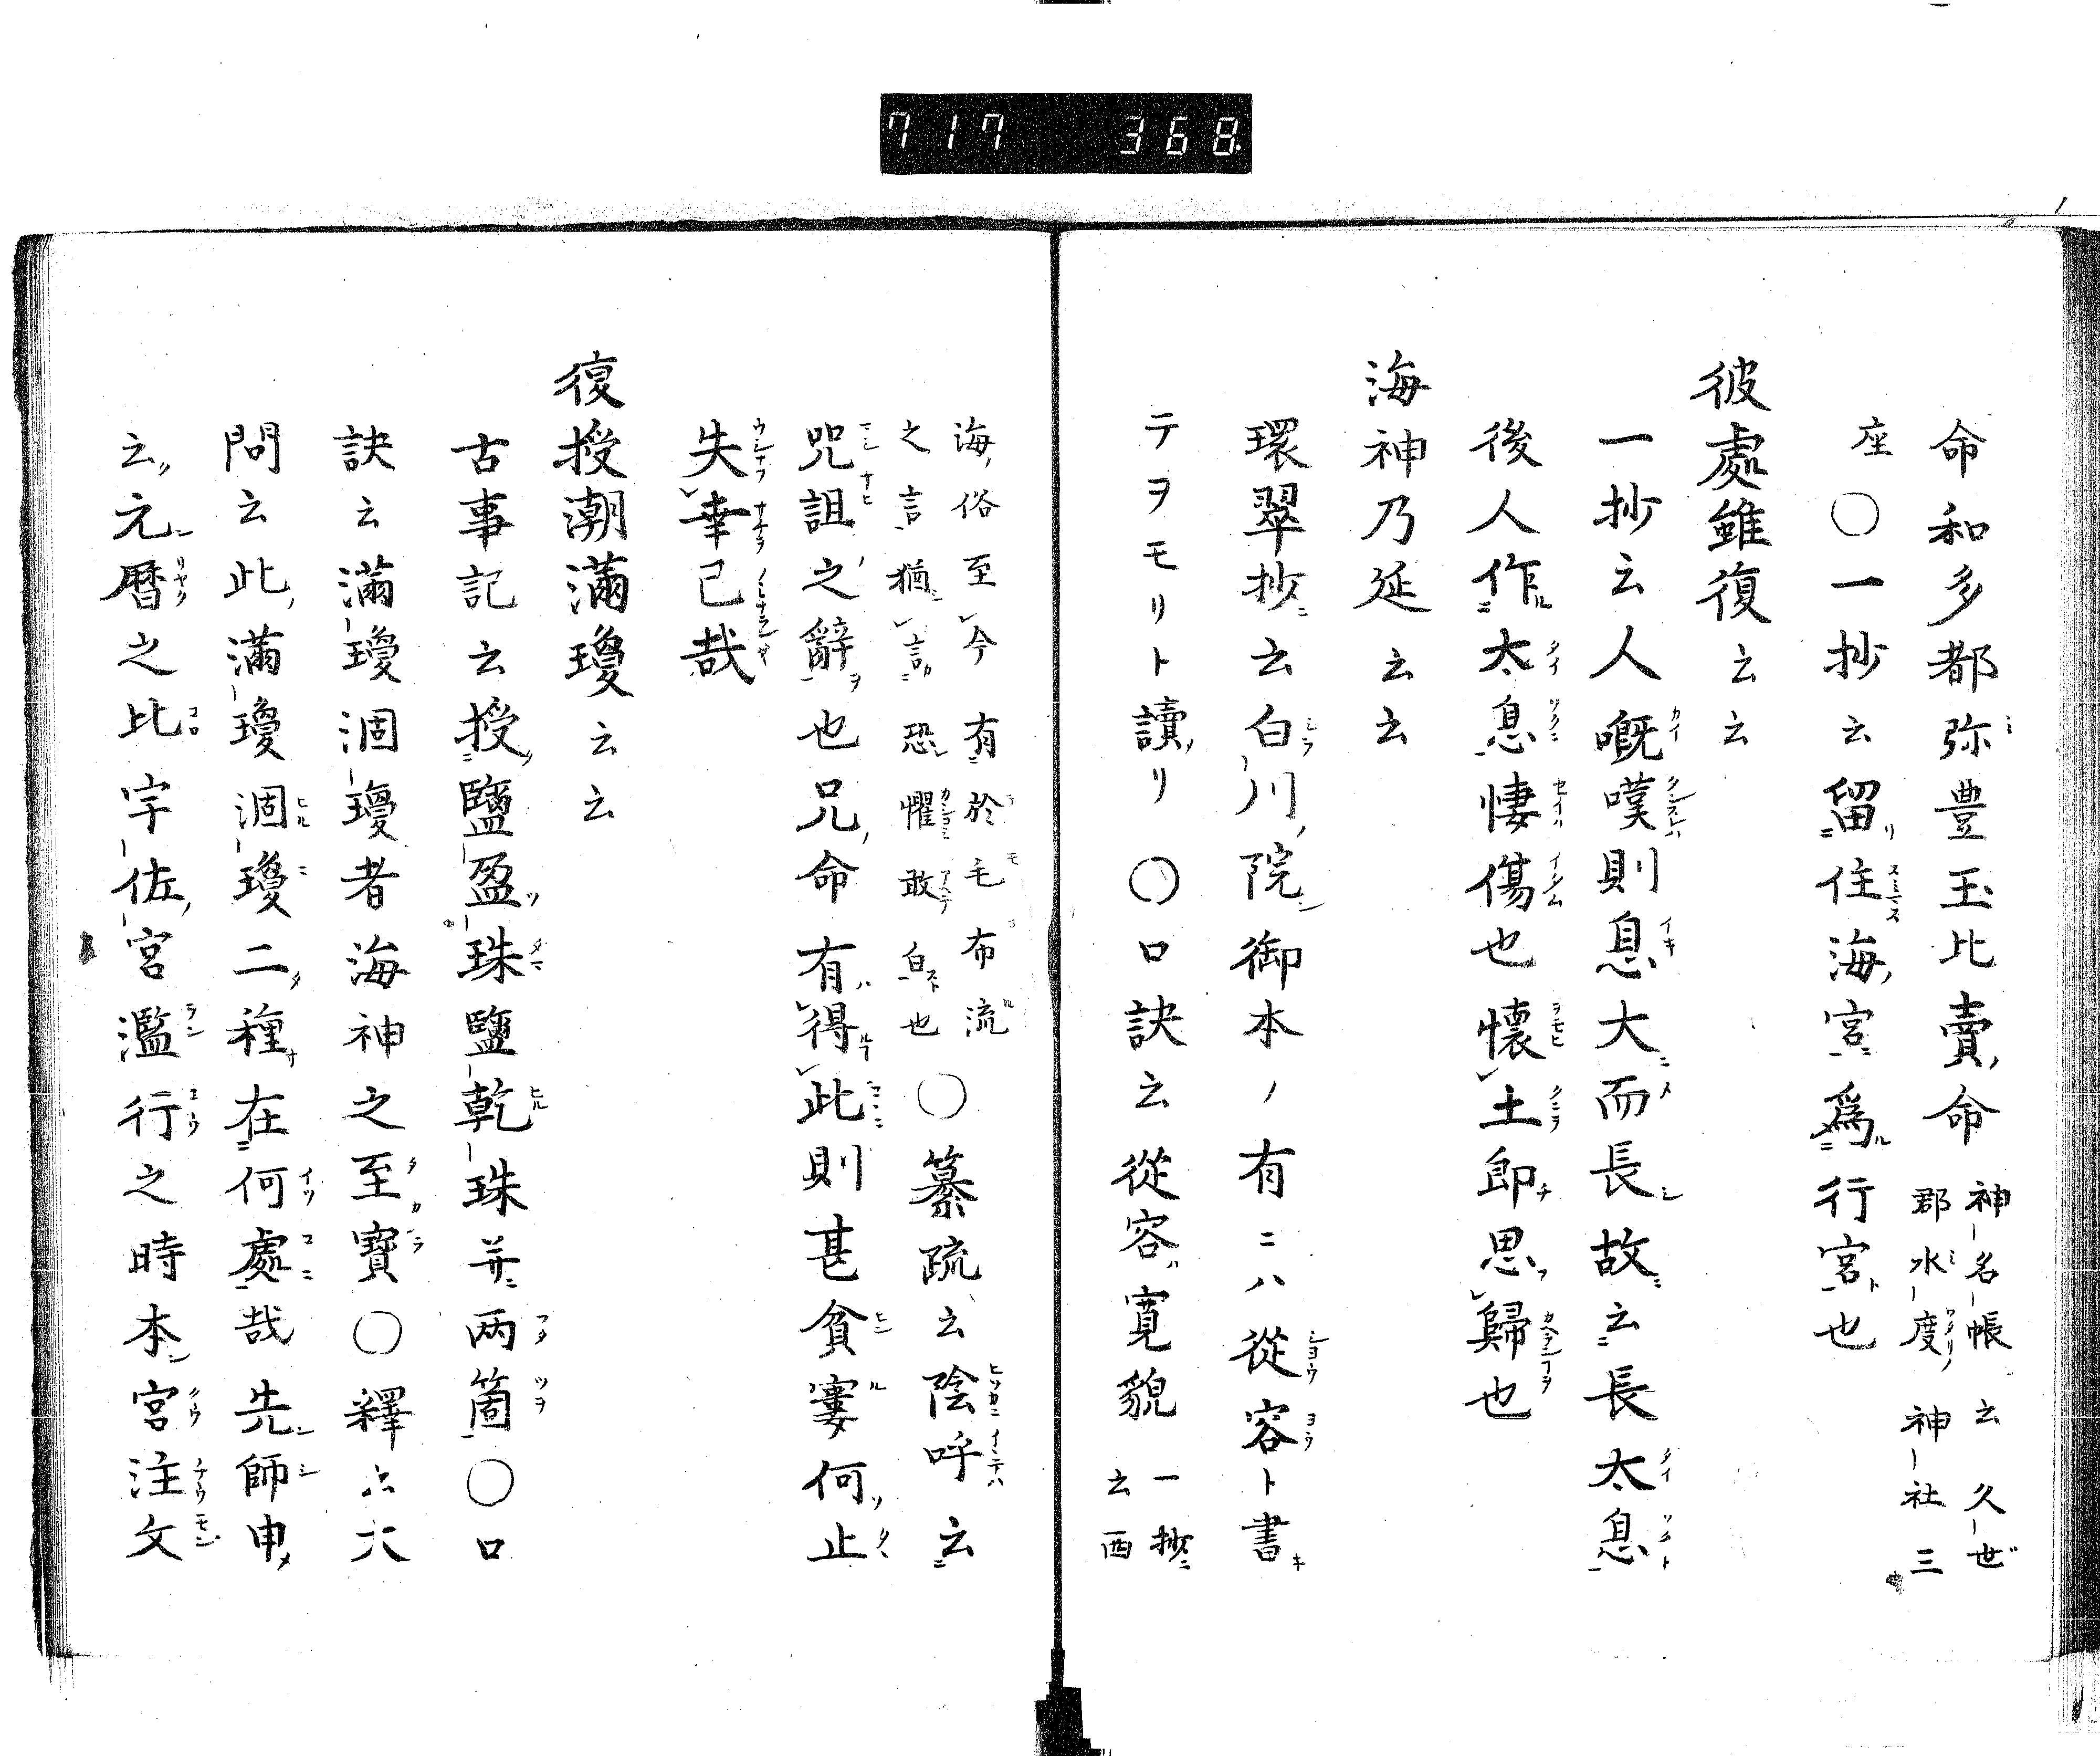 717 368
命和多都弥豊玉比賣命神名帳云久世
郡水度神社三
座〇一抄云留住海宮爲行宮也
彼處雖復云云
一抄云人嘅嘆則息大而長故云長太息
後人作太息悽傷也懷土即思歸也
海神乃延云云
環翠抄云白川院御本ノ有ニハ從容ト書
テヲモリト讀リ〇口訣云從容寛貌一抄
云西
海俗至今有於毛布流
之言猶言恐懼敢白也〇纂疏云陰呼云
咒詛之辭也兄命有得此則甚貧窶何止
失幸己哉
復授潮滿瓊云云
古事記云授鹽盈珠鹽乾珠并两箇〇口
訣云滿瓊涸瓊者海神之至寶〇釋云六
問云此滿瓊涸瓊二種在何處哉先師申
云元曆之比宇佐宮濫行之時本宮注文